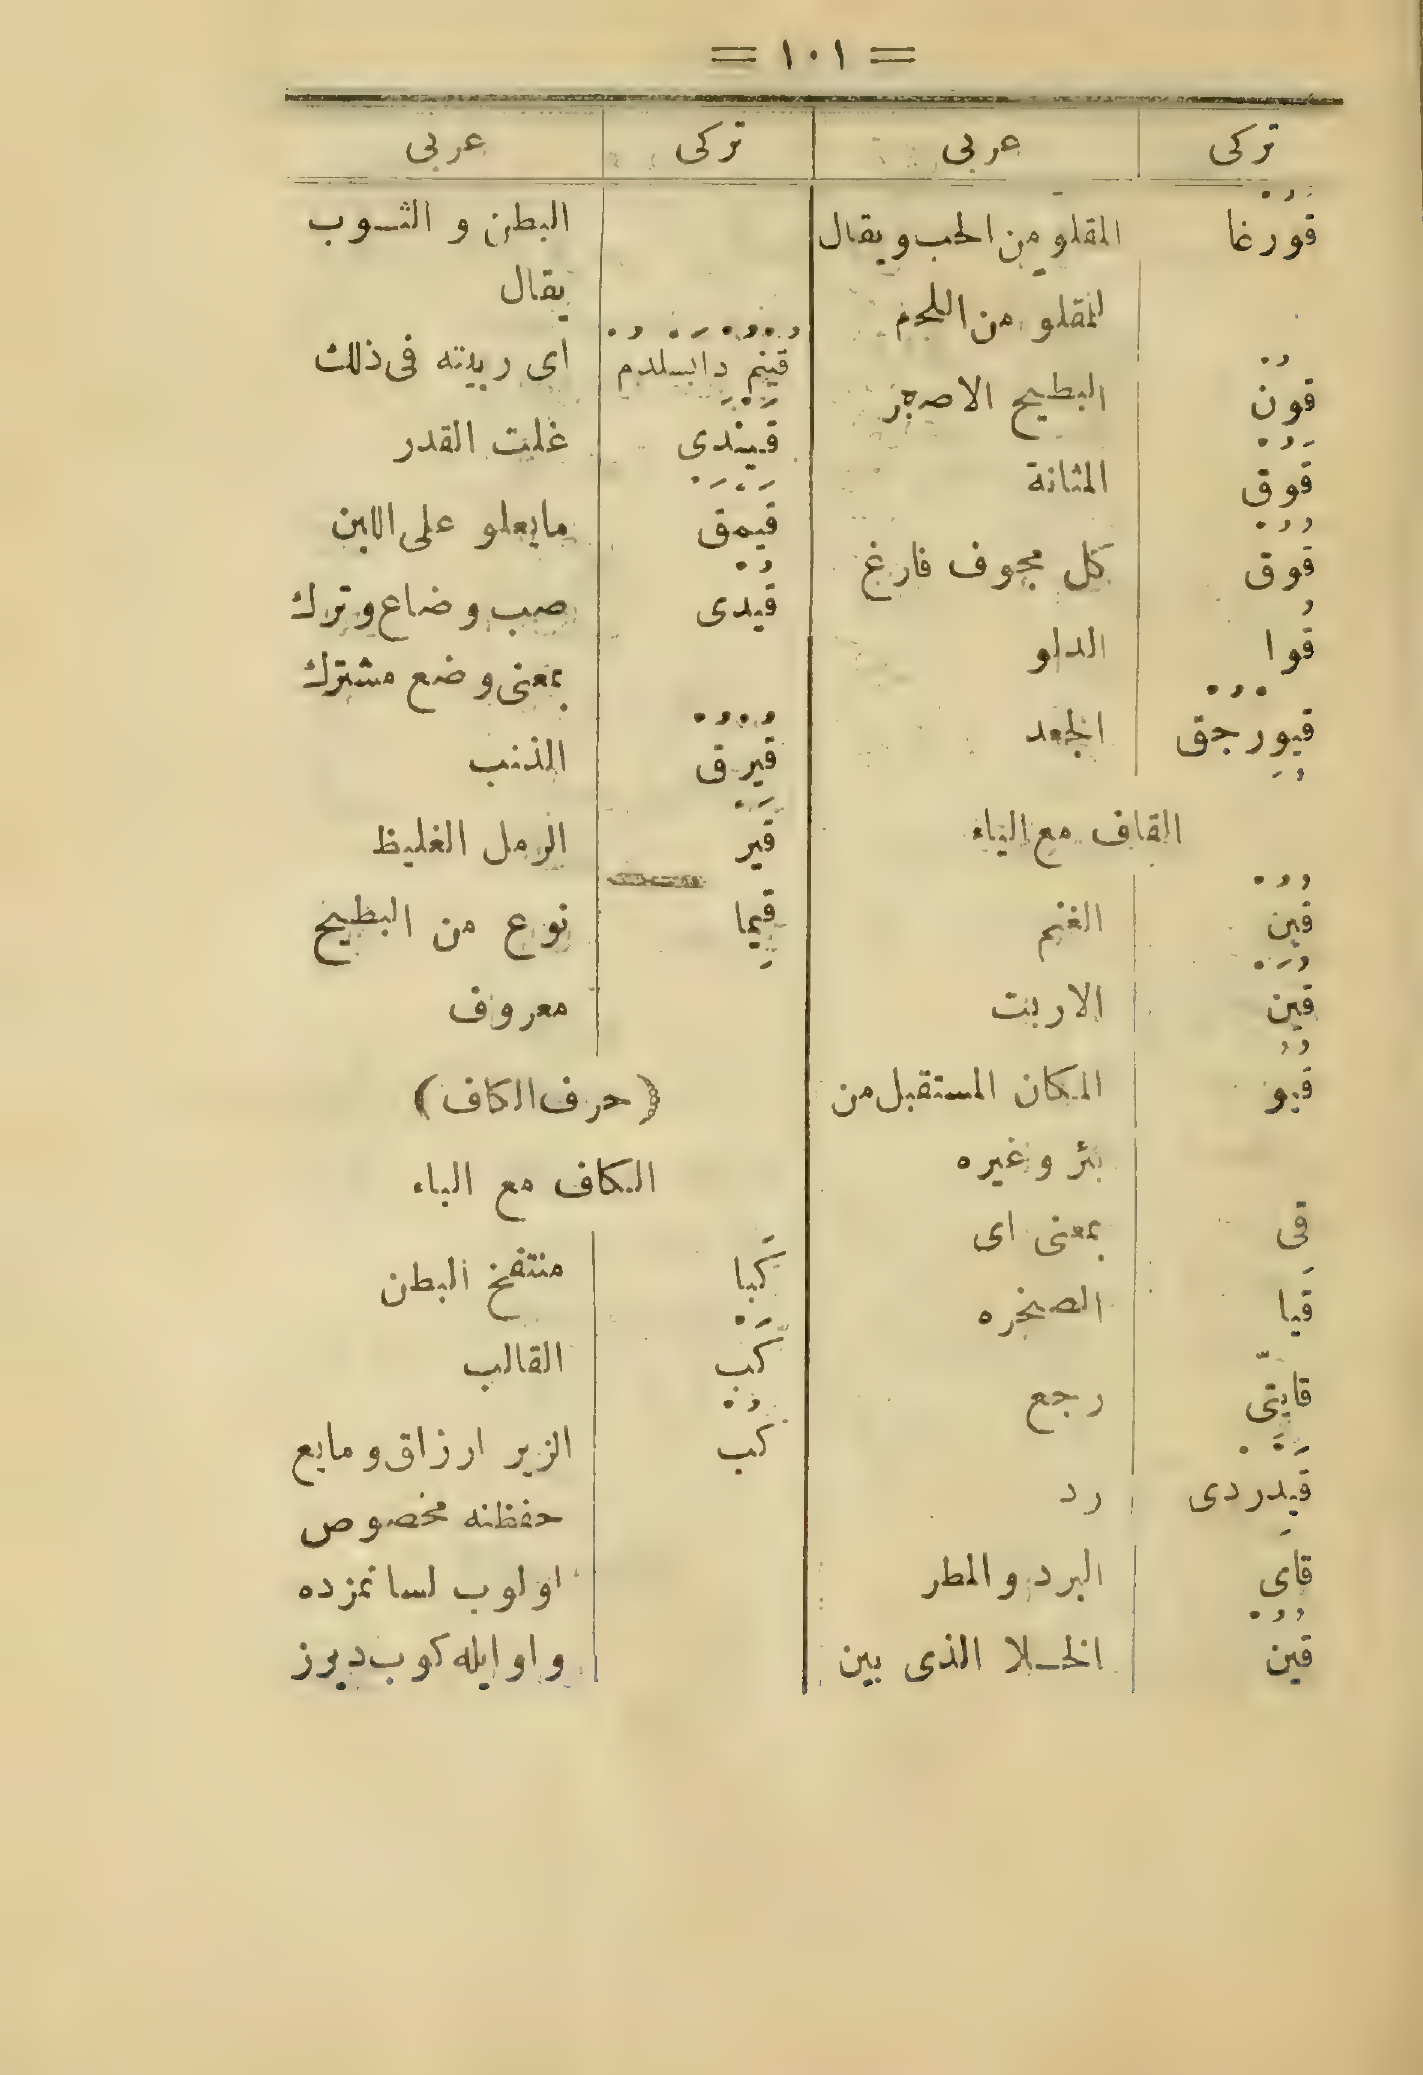 = ١٠١ =
تركى عربى تركى عربى
قورغا المقلو من الحب ويقال
للمقلو من اللحم
قون البطيخ الاصفر
قوق المثانة
قوق كل مجوف فارغ
قوا الدلو
قيورجق الجعد
القاف مع الياء
قين الغنم
قين الاربت
قيو المكان المستقبل من
بئر وغيره
قى بمعنى اى
قيا الصخره
قايتى رجع
قيدردى رد
قاى البرد والمطر
قين الخلا الذى بين
البطن و الثوب
يقال
قينم دابسلدم اى ربيته فى ذلك
قيندى غلت القدر
قيمق مايعلو على اللبن
قيدى صب وضاع وترك
بمعنى وضع مشترك
قيرق الذنب
قير الرمل الغليظ
قيما نوع من البطيخ
معروف
(حرف الكاف)
الكاف مع الباء
كبا منتفخ البطن
كب القالب
كب الزير ارزاق و مايع
حفظنه مخصوص
اولوب لسانمزده
واو ايله كوب ديرز